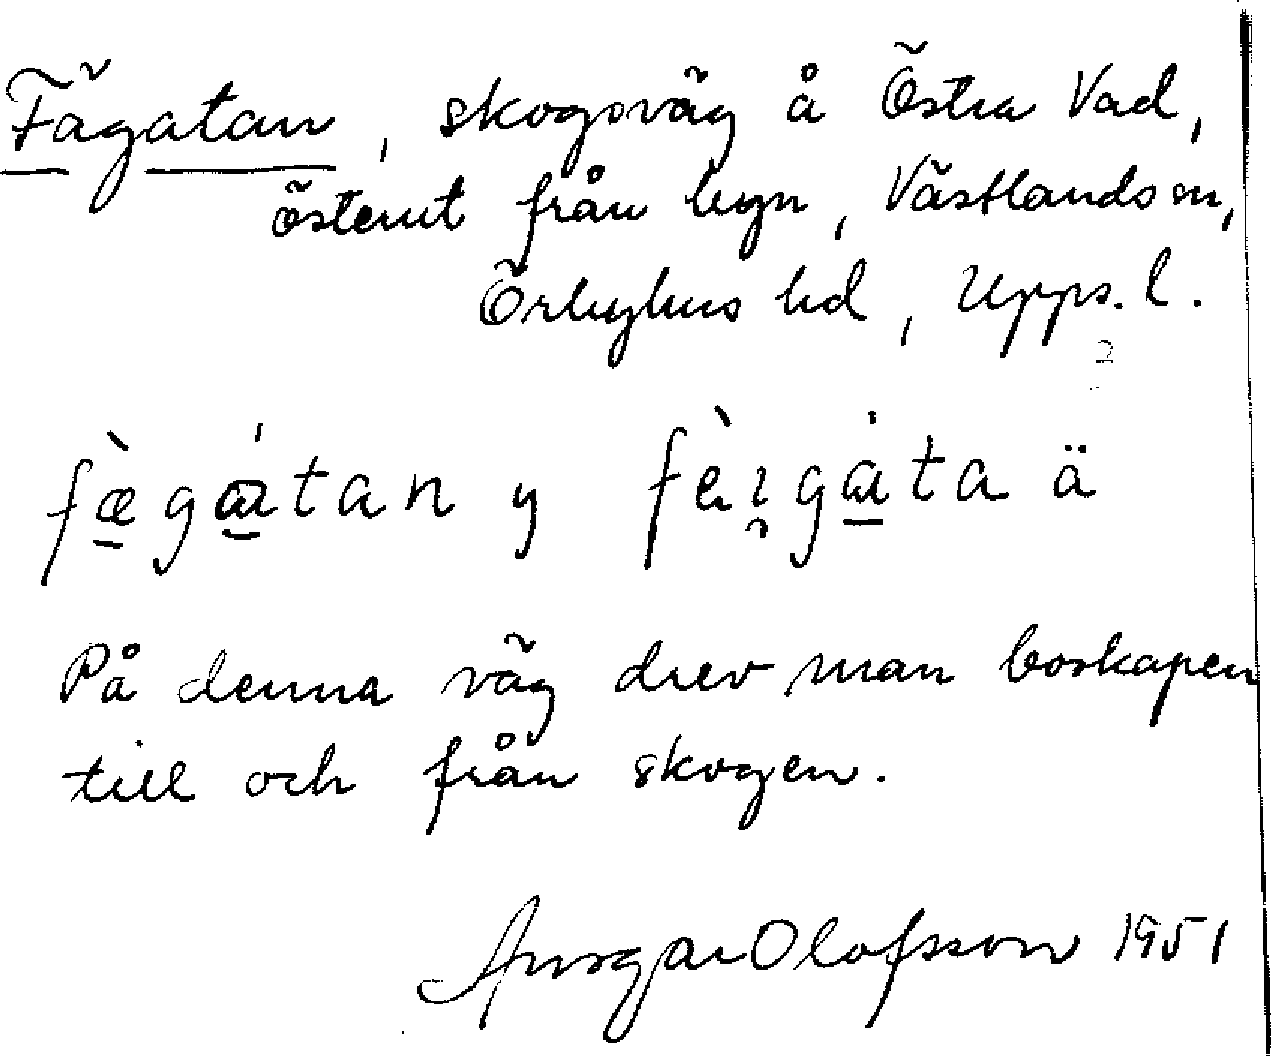 Fägatan, skogsväg å Östra Vad,
österut från byn, Västlands sn,
Örbyhus hd, Upps. l.
fæ̀gátan y fèɩgáta ä
På denna väg drev man boskapen
till och från skogen.
Ansgar Olofsson 1951